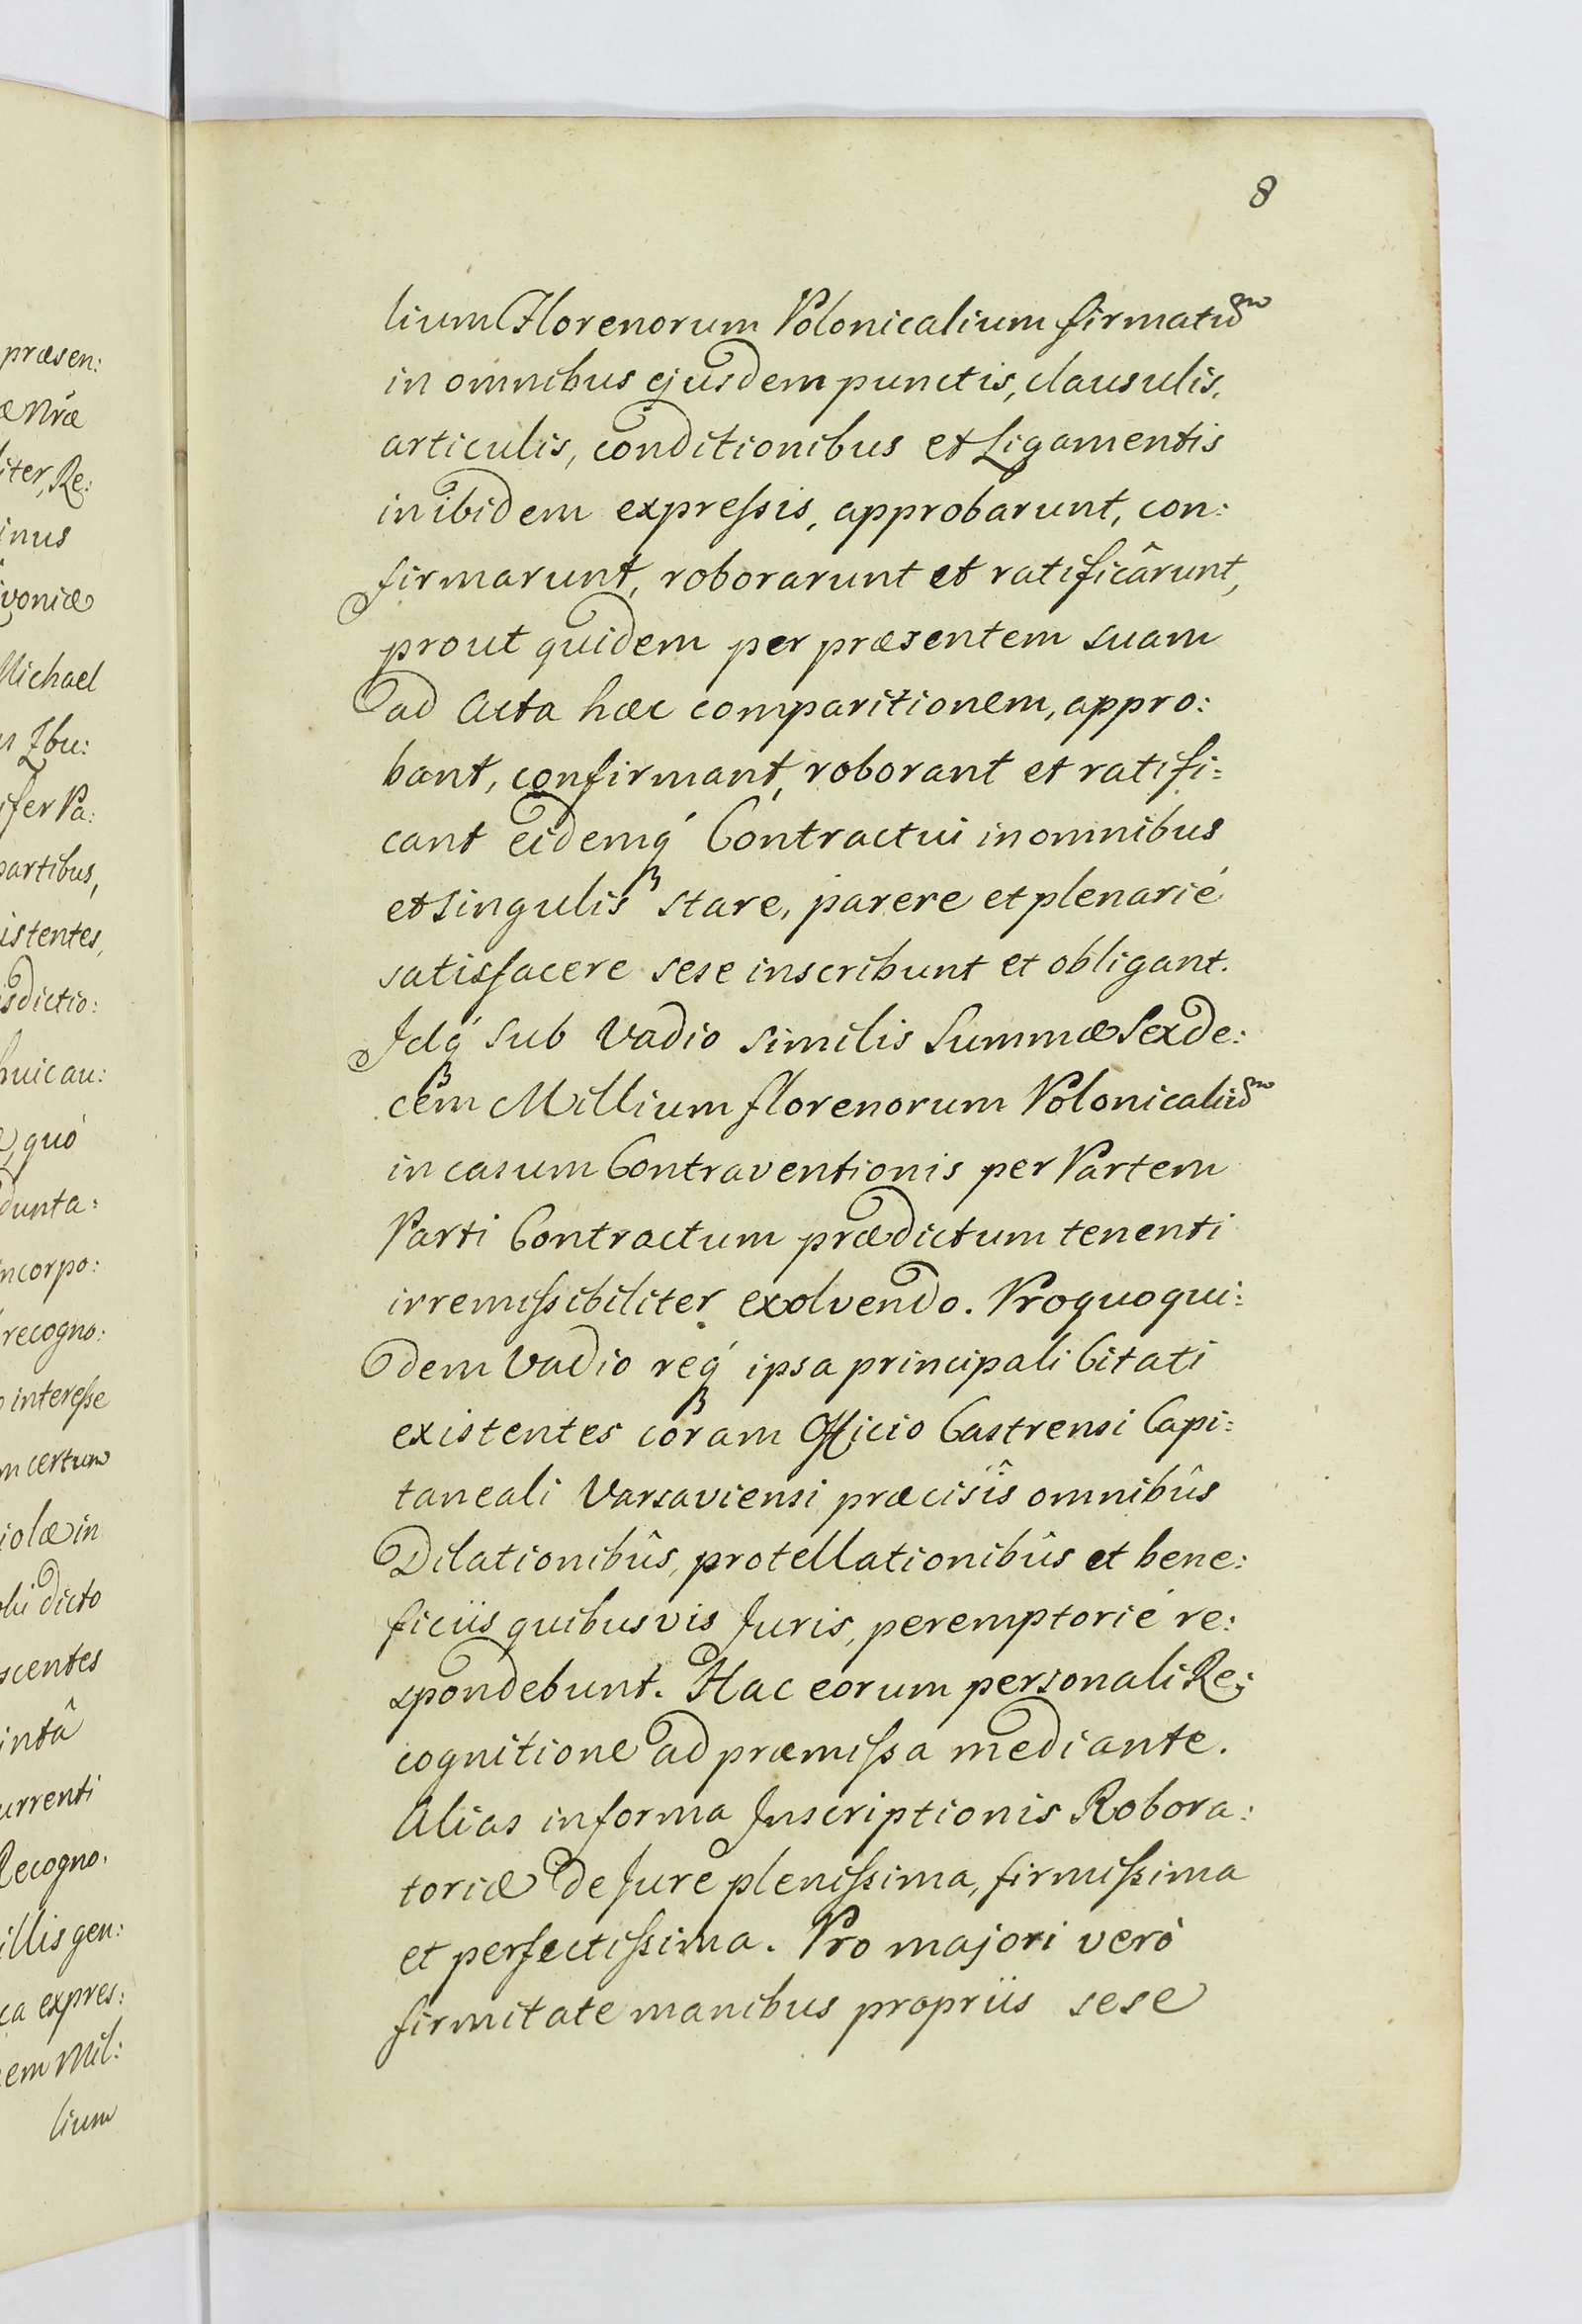 præsen:
æ nr̃æ
liter, Re:
inus
ivoniæ
Michael
Zbu:
ifer Pa:
partibus,
istentes,
isdictio:
huic au:
quó
dunta:
ncorpo:
recogno:
interesse
m certum
iolæ in
dicto
scentes
intâ
urrenti
Recogno.
illis gen:
ca expres:
em Mil:
lium
8
lium Florenorum Polonicalium firmatũ
in omnibus ejusdem punctis, clausulis,
articulis, conditionibus et Ligamentis
inibidem expressis, approbarunt, con:
firmarunt, roborarunt et ratificârunt,
prout quidem per præsentem suam
ad Acta hæc comparitionem, appro:
bant, confirmant, roborant et ratifi:
cant eidemq́ Contractui in omnibus
et singulis stare, parere et plenarié
satisfacere sese inscribunt et obligant.
Idq́ sub Vadio similis Summæ Sexde:
cem Millium florenorum Polonicaliũ
in casum Contraventionis per Partem
Parti Contractum prædictum tenenti
irremissibiliter exolvendo. Pro quo qui:
dem Vadio req́ ipsa principali Citati
existentes coram Officio Castrensi Capi:
taneali Varsaviensi præcisîs omnibûs
Dilationibûs, protellationibûs et bene:
ficiis quibusvis Juris, peremptorié re:
spondebunt. Hac eorum personali Re:
cognitione ad præmissa mediante.
Alias in forma Inscriptionis Robora:
toriæ de Jure plenissima, firmissima
et perfectissima. Pro majori verò
firmitate manibus propriis sese